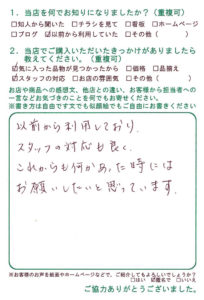 1．当店を何でお知りになりましたか？（重複可）
□知人から聞いた □チラシを見て □看板 □ホームページ
□ブログ ☑以前から利用していた □その他（　　　）
2．当店でご購入いただいたきっかけがありましたら
教えてください。（重複可）
☑気に入った品物が見つかったから □価格 □品揃え
☑スタッフの対応 □お店の雰囲気 □その他（　　　）
お店や商品への感想文、他店との違い、お客様から担当者への
一言などお気づきのことを何でもお寄せください。
※書き方は自由です文でも似顔絵でもご自由にお書きください
以前から利用しており、
スタッフの対応も良く、
これからも何かあった時には
お願いしたいと思っています。
※お客様のお声を紙面やホームページなどで、ご紹介してもよろしいでしょうか？
□はい ☑匿名で □いいえ
ご協力ありがとうございました。